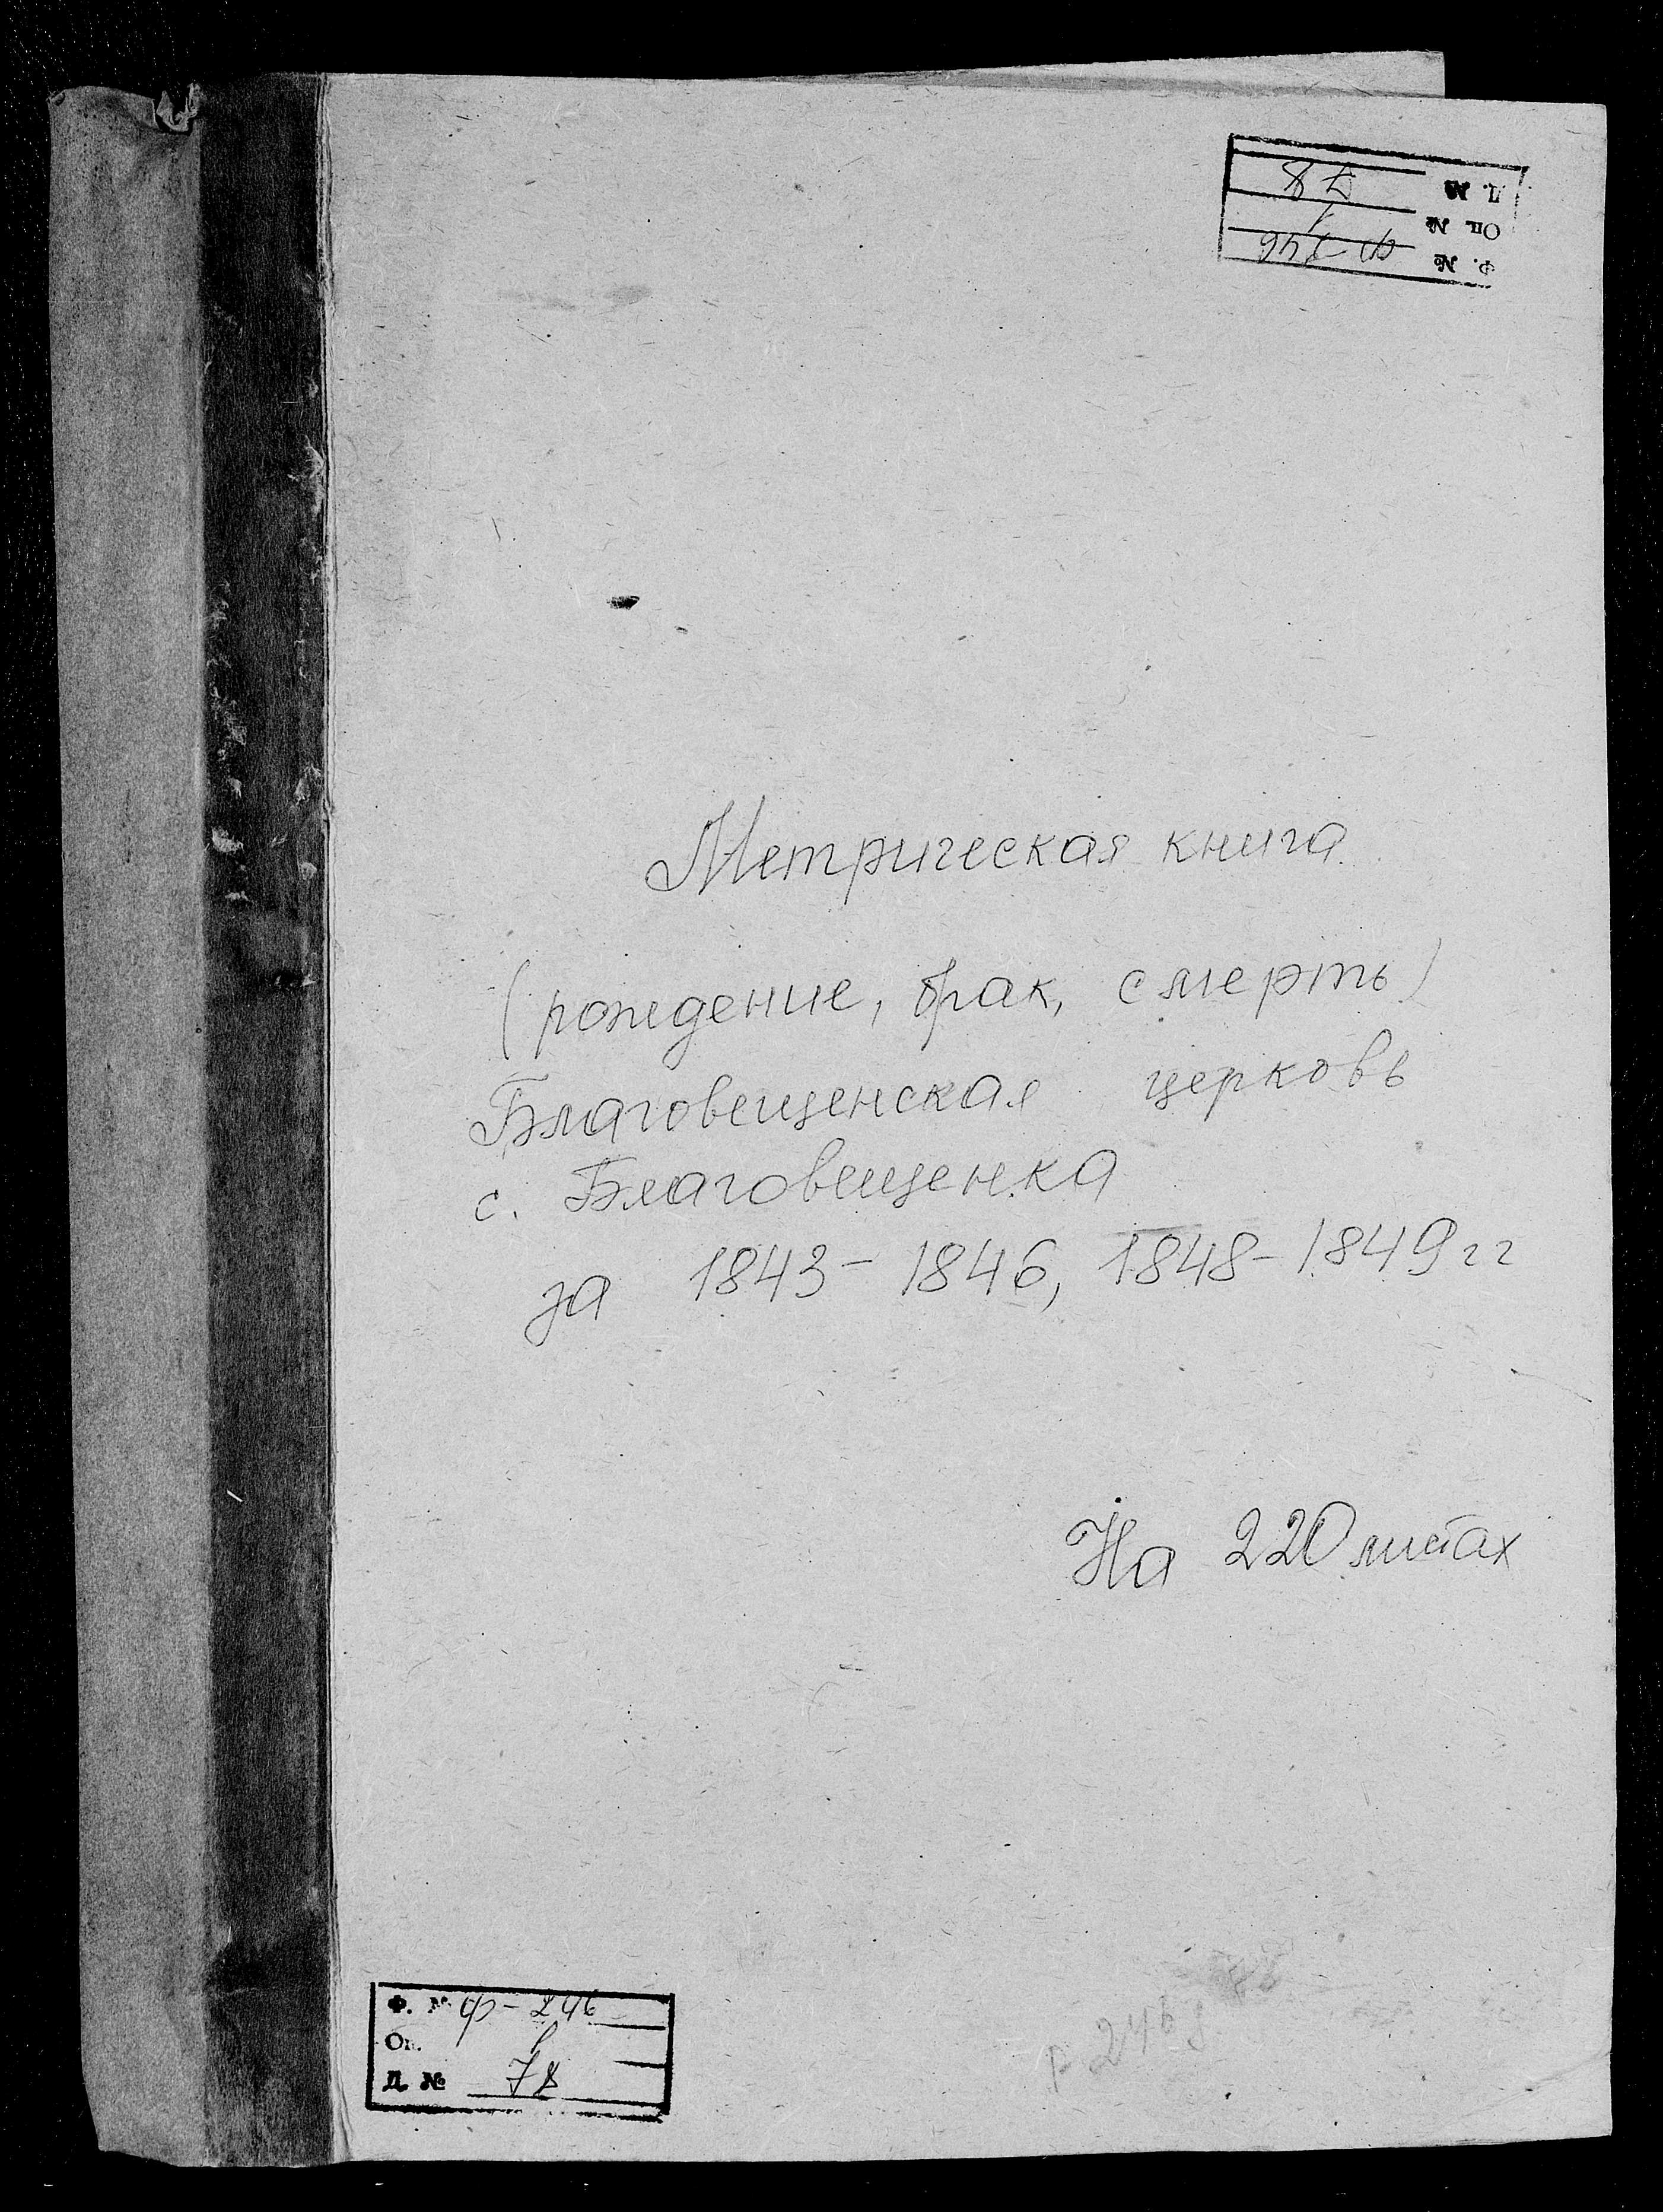 Д. № 78
Оп. № 1
Ф. № Ф-246
Метрическая книга
(рождение, брак, смерть)
Благовещенская церковь
с. Благовещенка
за 1843-1846, 1848-1849 гг
На 220 листах
Ф. № Ф-246
Оп.
Д. № 78